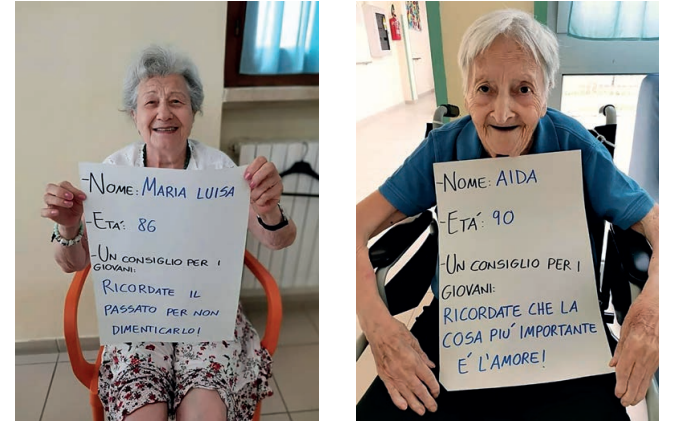 -NOME: MARIA LUISA
-ETÀ: 86
-UN CONSIGLIO PER I
GIOVANI:
RICORDATE IL
PASSATO PER NON
DIMENTICARLO!
-NOME: AIDA
-ETA': 90
-UN CONSIGLIO PER I
GIOVANI:
RICORDATE CHE LA
COSA PIU' IMPORTANTE
E' L'AMORE!